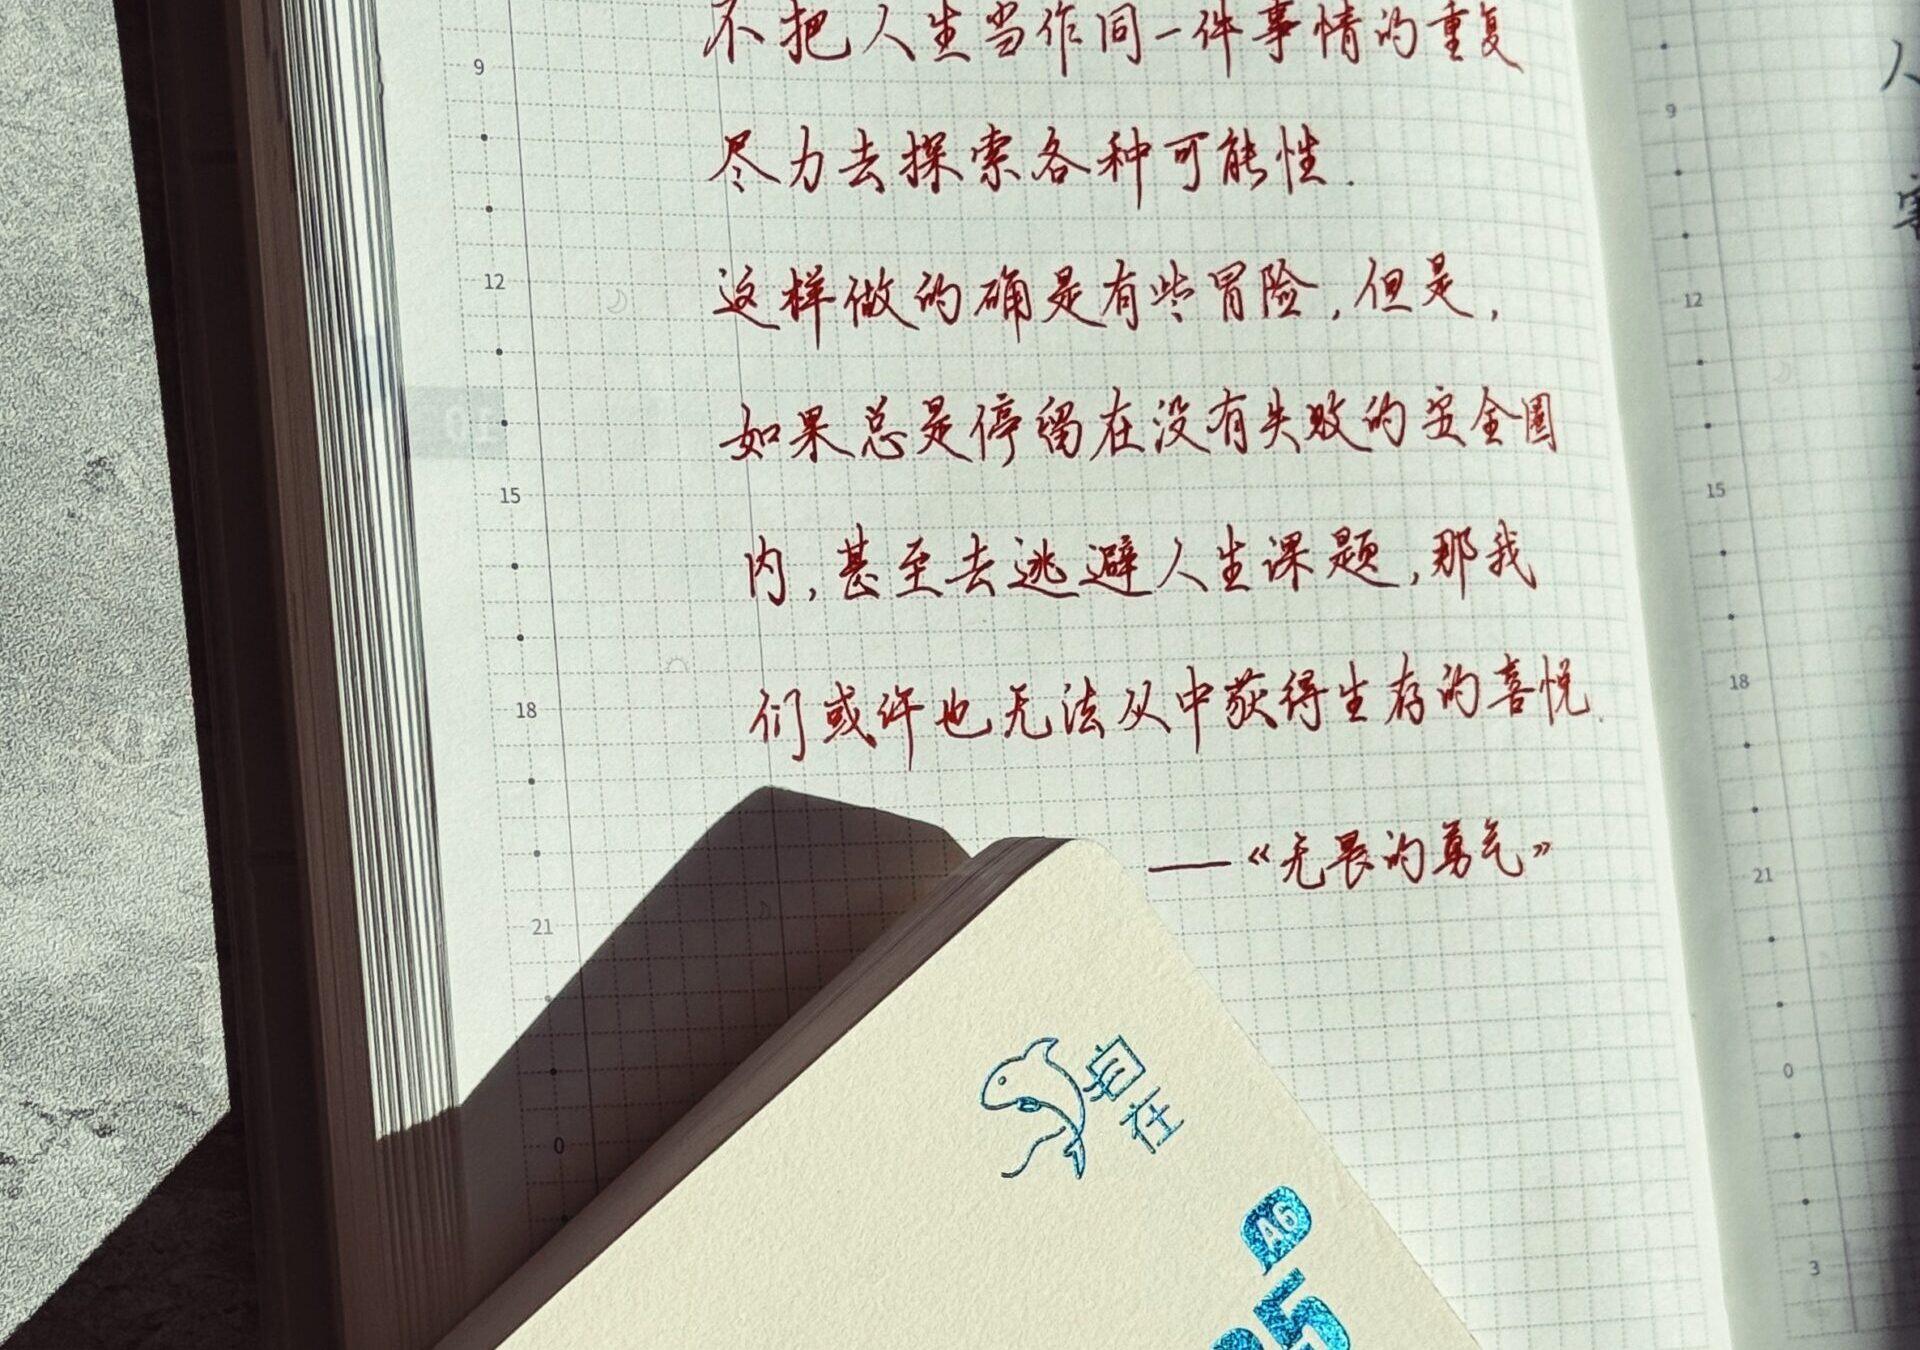 不把人生当作同一件事情的重复
尽力去探索各种可能性.
这样做的确是有些冒险,但是,
如果总是停留在没有失败的安全圈
内,甚至去逃避人生课题,那我
们或许也无法从中获得生存的喜悦.
——《无畏的勇气》
9
12
15
18
21
0
9
12
15
18
21
0
3
人
自在
A6